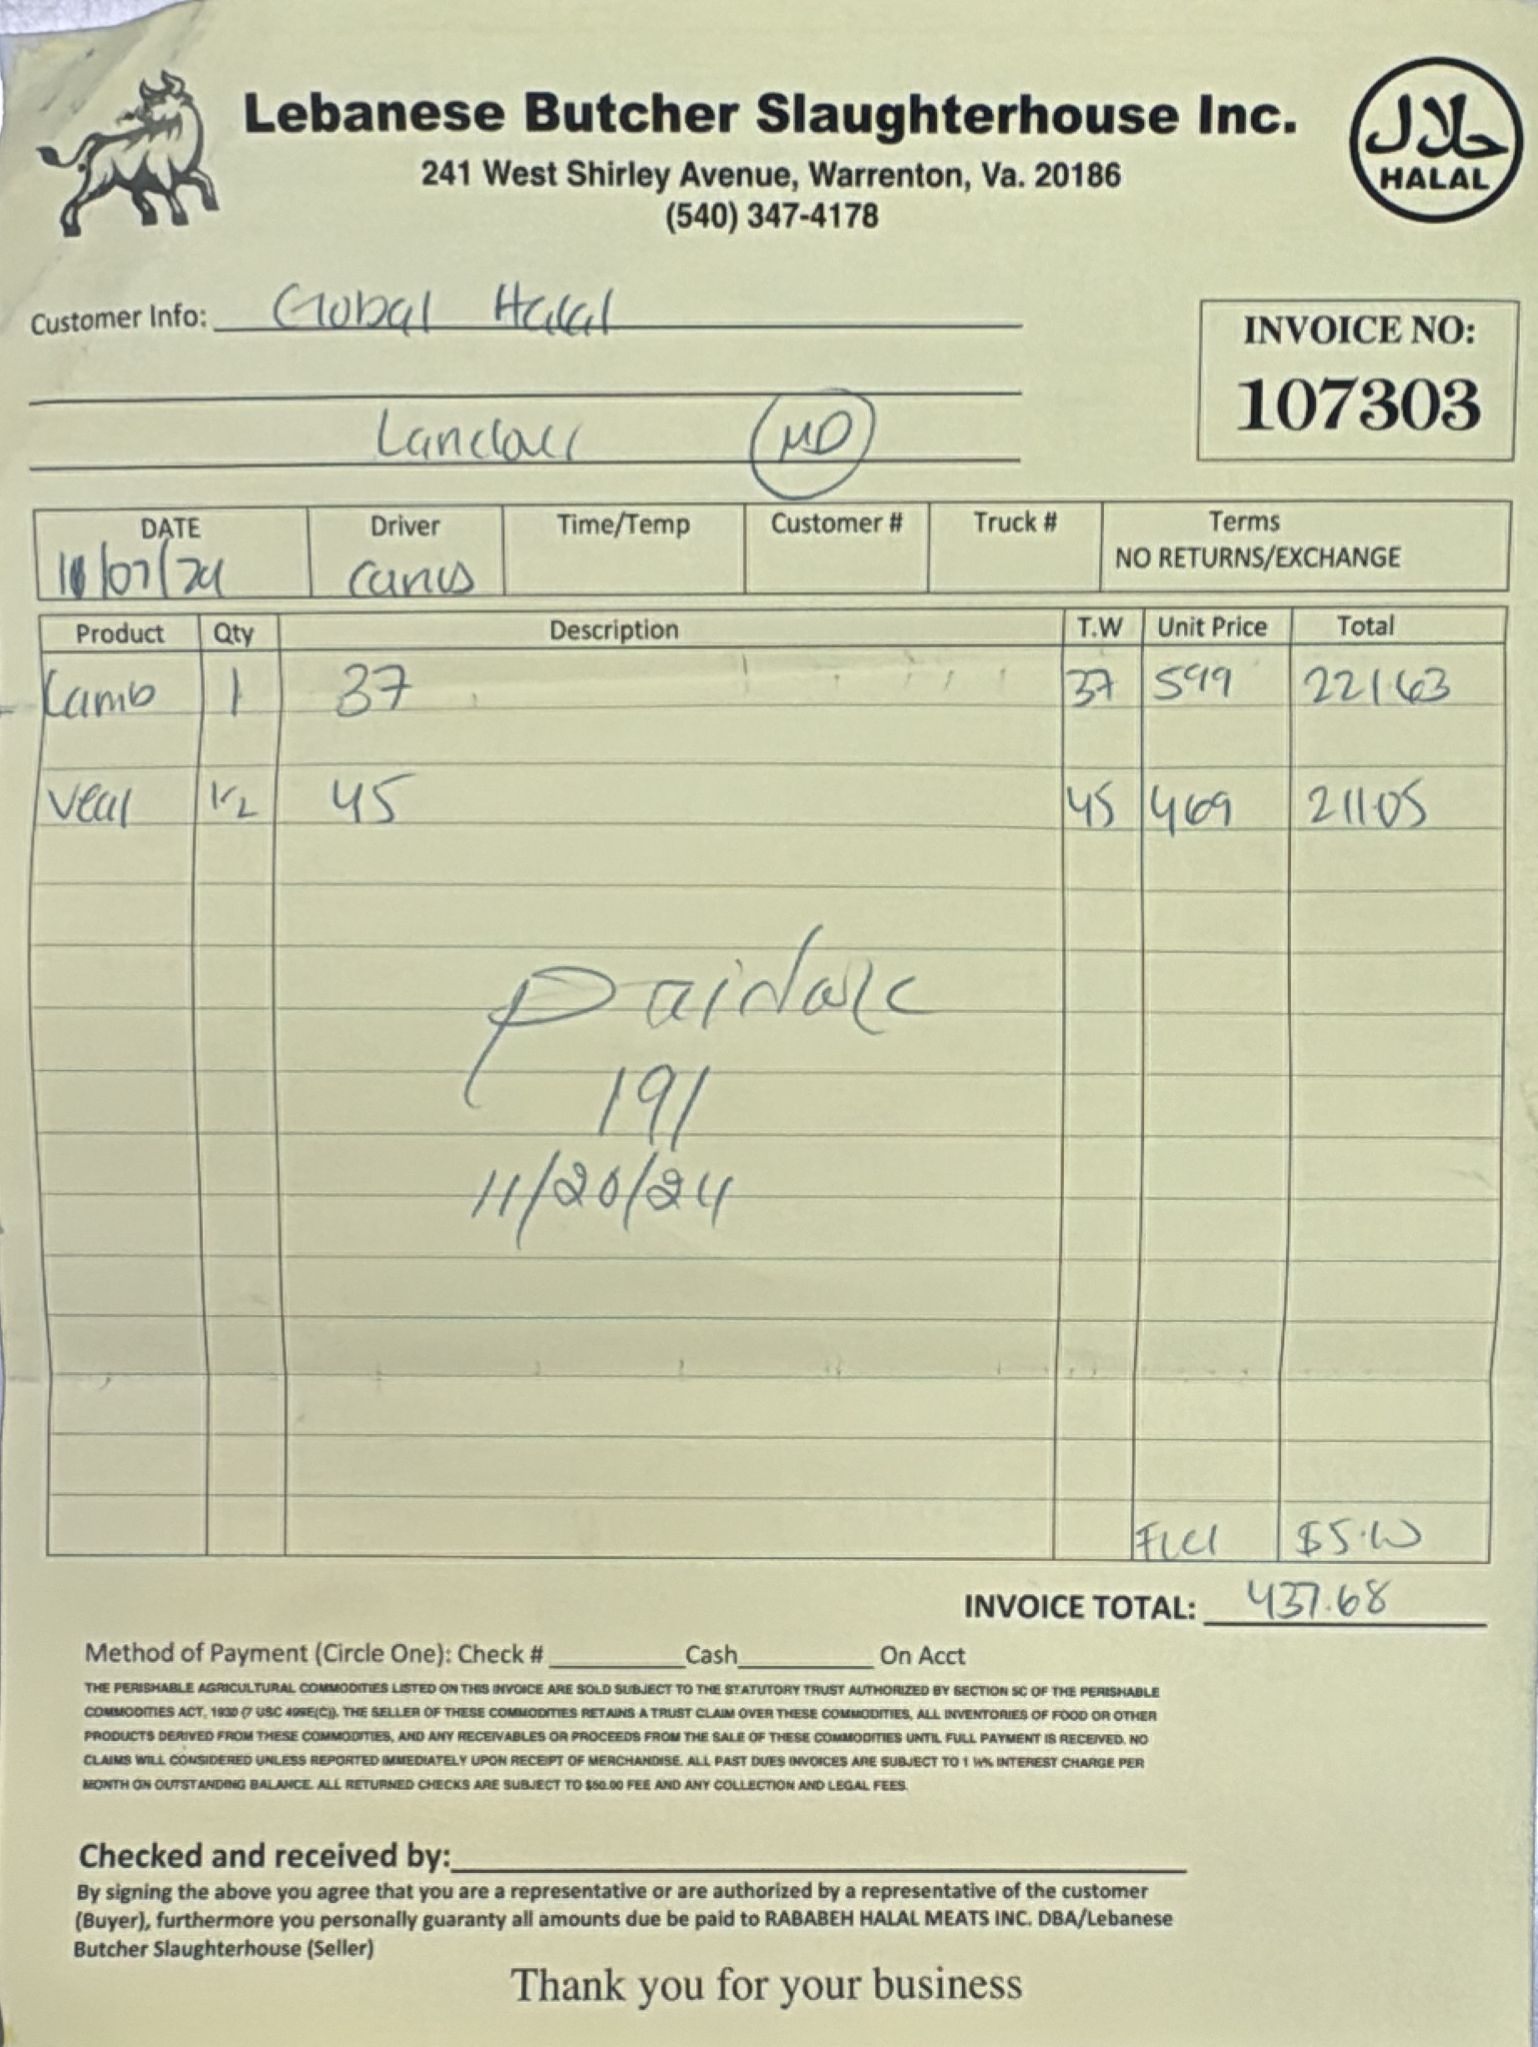 Lebanese Butcher Slaughterhouse Inc.
241 West Shirley Avenue, Warrenton, Va. 20186
(540) 347-4178
حلال
HALAL
Customer Info: Global Halal
INVOICE NO:
107303
MD
DATE Driver Time/Temp Customer # Truck # Terms
NO RETURNS/EXCHANGE
/07/24
Product Qty Description T.W Unit Price Total
Lamb 1 37 37 599 221.63
Veal 1/2 45 45 469 211.05
191
11/20/24
Fuel $5.00
INVOICE TOTAL: 437.68
Method of Payment (Circle One): Check # Cash On Acct
THE PERISHABLE AGRICULTURAL COMMODITIES LISTED ON THIS INVOICE ARE SOLD SUBJECT TO THE STATUTORY TRUST AUTHORIZED BY SECTION 5C OF THE PERISHABLE
COMMODITIES ACT, 1930 (7 USC 499E(C)). THE SELLER OF THESE COMMODITIES RETAINS A TRUST CLAIM OVER THESE COMMODITIES, ALL INVENTORIES OF FOOD OR OTHER
PRODUCTS DERIVED FROM THESE COMMODITIES, AND ANY RECEIVABLES OR PROCEEDS FROM THE SALE OF THESE COMMODITIES UNTIL FULL PAYMENT IS RECEIVED. NO
CLAIMS WILL CONSIDERED UNLESS REPORTED IMMEDIATELY UPON RECEIPT OF MERCHANDISE. ALL PAST DUES INVOICES ARE SUBJECT TO 1 ½% INTEREST CHARGE PER
MONTH ON OUTSTANDING BALANCE. ALL RETURNED CHECKS ARE SUBJECT TO $50.00 FEE AND ANY COLLECTION AND LEGAL FEES.
Checked and received by:
By signing the above you agree that you are a representative or are authorized by a representative of the customer
(Buyer), furthermore you personally guaranty all amounts due be paid to RABABEH HALAL MEATS INC. DBA/Lebanese
Butcher Slaughterhouse (Seller)
Thank you for your business